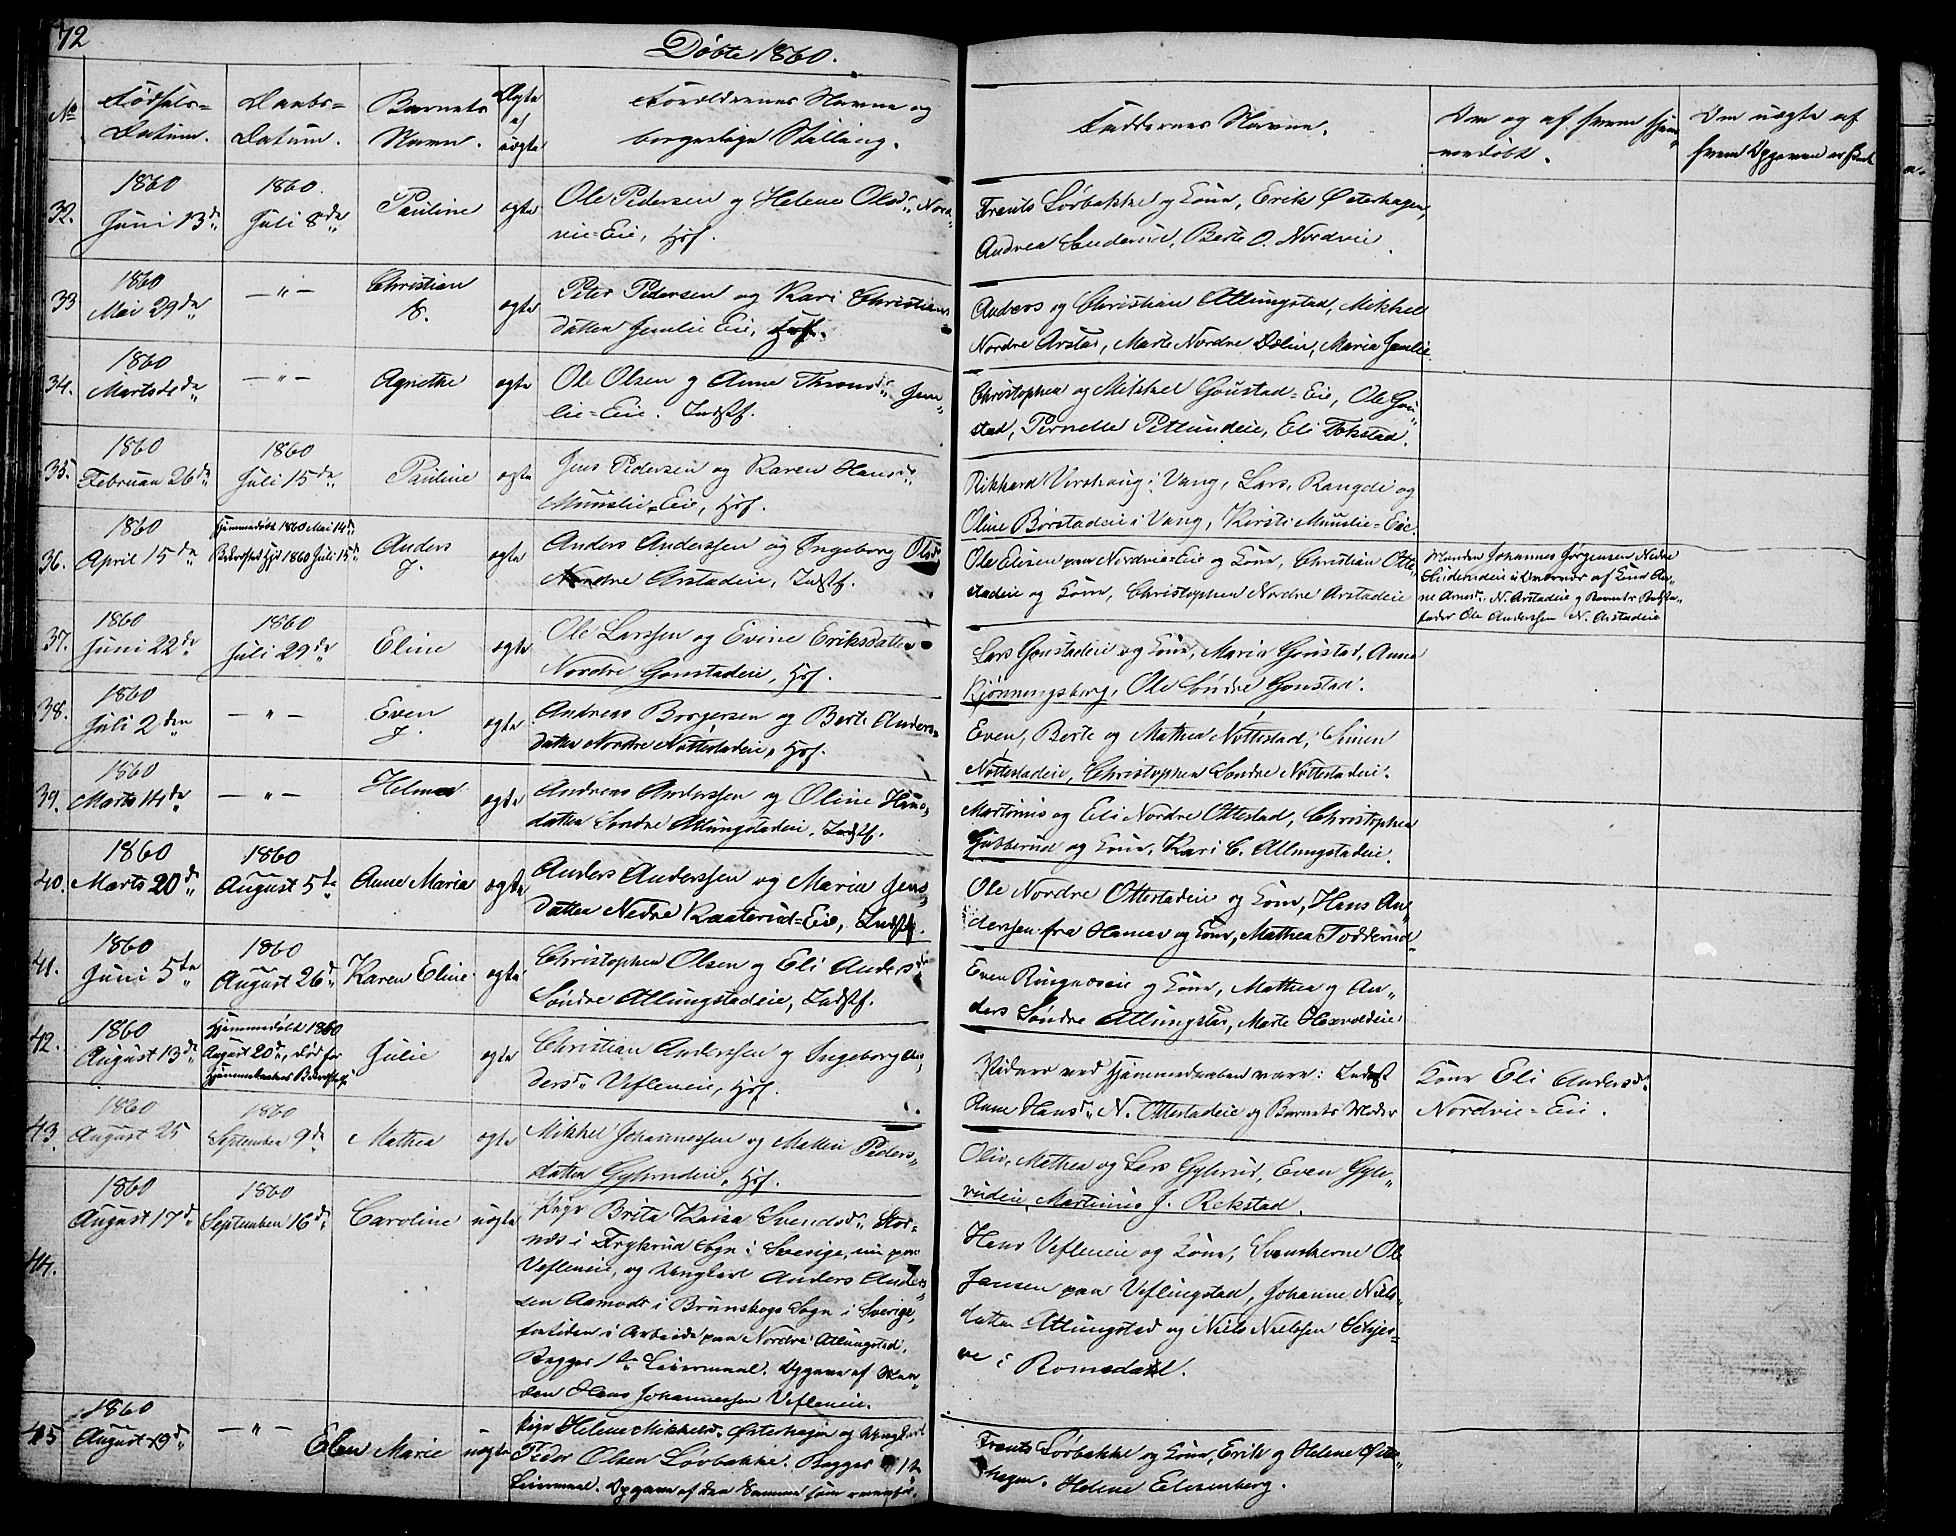 72
Døbte 1860.
No
Fødsels=
Datum.
Daabs=
Datum.
Barnets
Navn.
Ægte
el
uægte
Forældrenes Navne og
borgerlige Stilling.
Faddernes Navne.
Om og af hvem hjem-
mendøbt.
Om uægte af
hvem Opgaven er skeet
32.
1860
Juni 13de
1860.
Juli 8de
Pauline
ægte
Ole Pedersen og Helene Olsdr. Nord-
vie=Eie, Hjf.
Frants Lørbakke og Kone, Erik Østerhagen,
Andrea Sanderud, Berte O. Nordvie
33
1860
Mai 29de
— " —
Christian
ægte
Peter Pedersen og Kari Christians
datter Jemlie Eie, Hjf.
Anders og Christian Atlungstad, Mikkel
Nordre Arstad, Marte Nordre Dælin, Maria Jemlie
34.
1860
Marts
— " —
Agnethe
ægte
Ole Olsen og Anne Thronsdr. Jem-
lie=Eie. Indstf.
Christopher og Mikkel Gaustad=Eie, Ole Gau-
stad, Pernelle Petlundeie, Eli Tokstad.
35.
1860
Februar 26de
1860
Juli 15de
Pauline
ægte
Jens Pedersen og Karen Hansdr.
Munslie=Eie, Hjf.
Rikhard Virshaug i Vang, Lars, Rangdi og
Oline Børstadeie i Vang, Kersti Munslie=Eie.
36.
1860
April 15de
Hjemmedøbt 1860 Mai 14de
Bekræftet Hjf 1860 Juli 15de
Anders
J.
ægte
Anders Anderssen og Ingeborg Olsdr
Nordre Arstadeie, Indstf.
Ole Elisen paa Nordvie=Eie og Kone, Christian Otte-
stadeie og Kone, Christopher Nordre Arstadeie
Manden Johannes Jørgensen Nedre
af Kone An-
ne N. Arstadeie og Barnets
fader Ole Anderssen N. Arstadeie
37.
1860
Juni 22de
1860
Juli 29de
Eline
ægte
Ole Larssen og Evine Eriksdatter
Nordre Gaustadeie, Hjf.
Lars Gaustadeie og Kone, Maria Gaustad, Anne
Kjønningsberg, Ole Søndre Gaustad.
38.
1860
Juli 2den
— " —
Even
J.
ægte
Andreas Borgersen og Berte Anders=
datter Nordre Nøttestadeie, Hjf.
Even, Berte og Mathea Nøttestad, Simen
Nøttestadeie, Christopher Søndre Nøttestadeie.
39.
1860
Marts 14de
— " —
Helmer
ægte
Andreas Anderssen og Oline Hans-
datter Søndre Atlungstadeie, Indstf.
Martinus og Eli Nordre Ottestad, Christopher
Gubberud og Kone, Kari C. Atlungstadeie.
40.
1860
Marts 20de
1860
August 5te
Anne Maria
ægte
Anders Anderssen og Maria Jens-
datter Nedre Kaaterud=Eie, Indstf.
Ole Nordre Ottestadeie og Kone, Hans An-
derssen fra Hamar og Kone, Mathea Todderud
41.
1860
Juni 5te
1860
August 26de
Karen Eline
ægte
Christopher Olsen og Eli Andersdr
Søndre Atlungstadeie, Indstf.
Even Ringneseie og Kone, Mathea og An-
ders Søndre Atlungstad, Marte Hexvoldeie
42.
1860
August 13de
Hjemmedøbt 1860
August 20de, død før
Hjemmedaabens Bekræftelse
Julie
ægte
Christian Anderssen og Ingeborg An-
dersdr. Vefleneie, Hjf.
Vidner ved Hjemmedaaben vare: Indstf
Anne Hansdr. N. Ottestadeie og Barnets Moder
Kone Eli Andersdr.
Nordvie=Eie.
43
1860
August 25
1860
September 9de
Mathea
ægte
Mikkel Johannessen og Mallene Peders-
datter Gylerudeie, Hjf.
Oliv, Mathea og Lars Gylerud, Even Gyle-
rudeie, Martinus J. Rekstad.
44.
1860
August 17de
1860
September 16de
Caroline
uægte
Pige Brita Kaisa Svendsdr. Stor-
næs i Frykerud Sogn i Sverige, nu paa
Vefleneie, og Ungkarl Anders Anders-
sen Aamodt i Brunskogs Sogn i Sverige,
fortiden i Arbeide paa Nordre Atlungstad.
Begges 1ste Leiermaal. Opgave af Man-
den Hans Johannessen Vefleneie.
Hans Vefleneie og Kone, Svenskerne Ole
Jansen paa Veflingstad, Johanne Niels-
datter Atlungstad og Niels Nielssen
i Romedal.
45
1860
August 19de
— " —
Elen Marie
uægte
Pige Helene Mikkelsdr. Østerhagen og Ungkarl
Peder Olsen Lørbakke. Begges 1ste
Leiermaal. Opgave af den Samme som ovenfor.
Frants Lørbakke og Kone, Erik og Helene Øster-
hagen. Helene Eilesenberg.